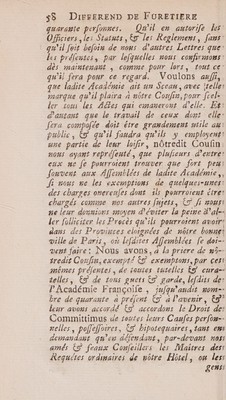 58 DIFFEREND DE FURETIERE
quarante personnes. Qu'il en autorise les
Officiers, les Statuts, & les Reglemens, sans
qu'il soit besoin de nous d'autres Lettres que
les présentes, par lesquelles nous confirmons
dès maintenant, comme pour lors, tout ce
qu'il fera pour ce regard. Voulons aussi,
que ladite Académie ait un Sceau, avec telle
marque qu'il plaira à nôtre Cousin, pour scel-
ler tous les Actes qui émaneront d'elle. Et
d'autant que le travail de ceux dont elle
sera composée doit être grandement utile au
public, & qu'il faudra qu'ils y employent
une partie de leur loisir, nôtredit Cousin
nous ayant représenté, que plusieurs d'entre
eux ne se pourroient trouver que fort peu
souvent aux Assemblées de ladite Académie,
si nous ne les exemptions de quelques-unes
des charges onereuses dont ils pourroient être
chargés comme nos autres sujets, & si nous
ne leur donnions moyen d'éviter la peine d'al-
ler solliciter les Procès qu'ils pourroient avoir
dans des Provinces éloignées de nôtre bonne
ville de Paris, où lesdites Assemblées se doi-
vent faire: Nous avons, à la priere de nô-
tredit Cousin, excepté & exemptons, par ces
mêmes présentes, de toutes tutelles & cura-
telles, & de tous guets & garde, lesdits de
l'Académie Françoise, jusqu'audit nom-
bre de quarante à présent & à l'avenir, &
leur avons accordé & accordons le Droit de
Committimus de toutes leurs Causes person-
nelles, possessoires, & hipotequaires, tant en
demandant qu'en défendant, par-devant nos
amés & feaux Conseillers les Maitres des
Requêtes ordinaires de nôtre Hôtel, ou les
gens